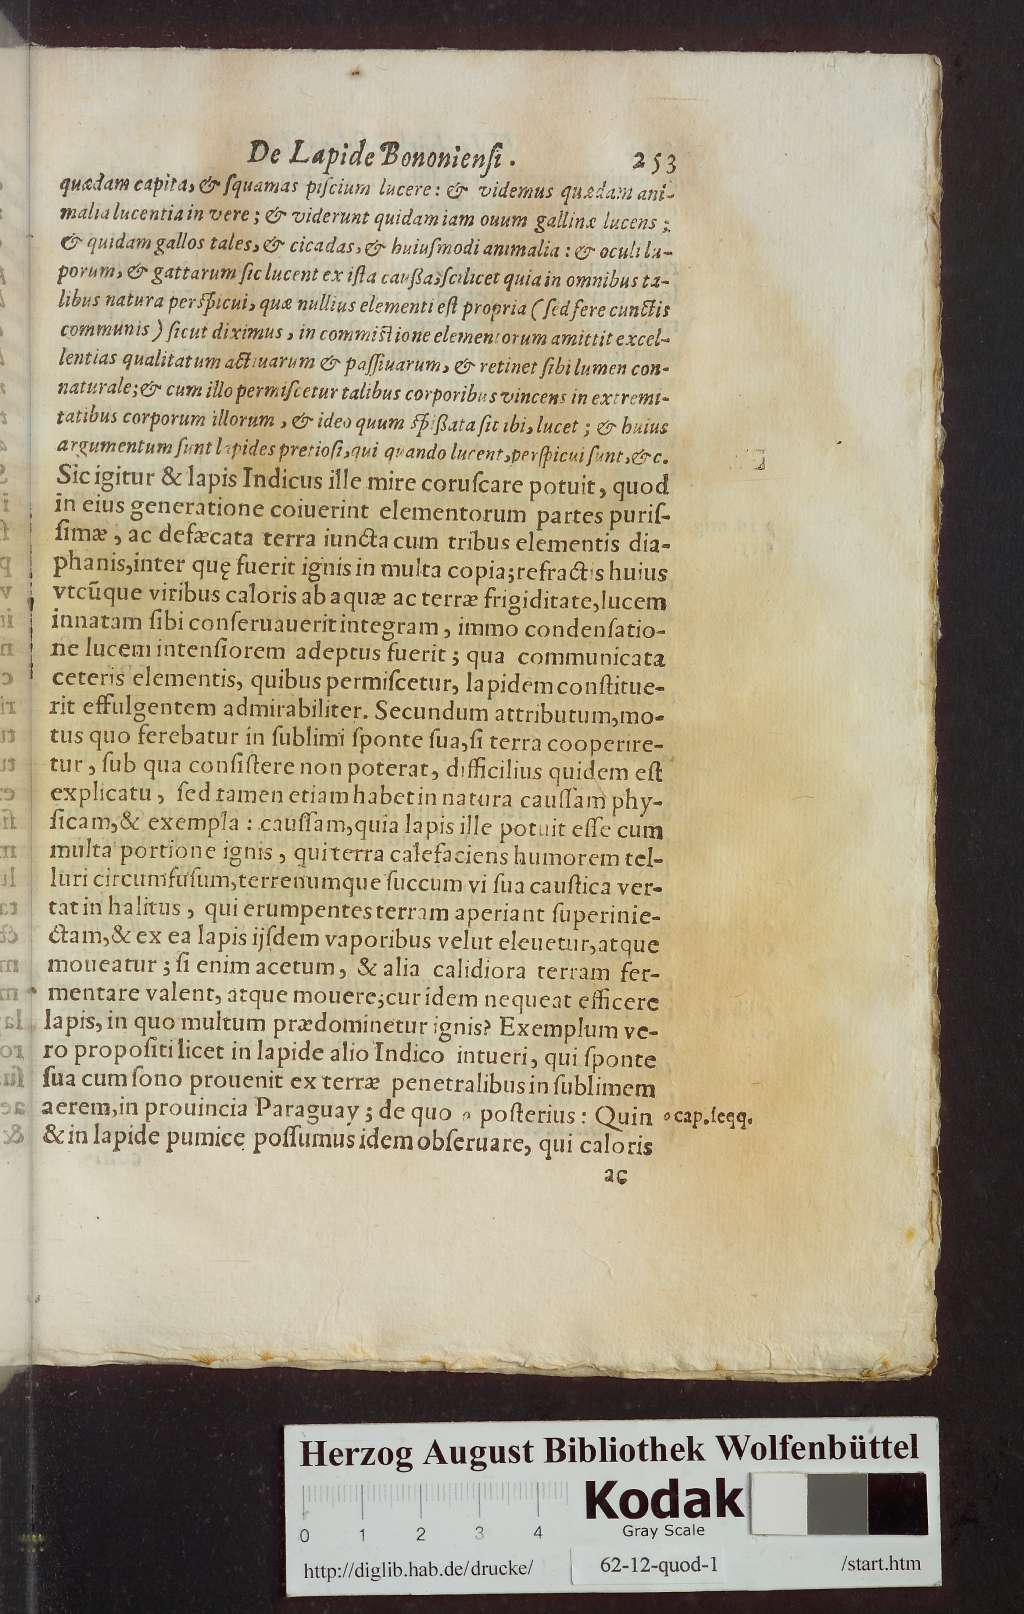 De Lapide Bononiensi. 253
quædam capita, & squamas piscium lucere: & videmus quædam ani-
malia lucentia in vere; & viderunt quidam iam ouum gallinæ lucens;
& quidam gallos tales, & cicadas, & huiusmodi animalia: & oculi lu-
porum, & gattarum sic lucent ex ista caußa; scilicet quia in omnibus ta-
libus natura perspicui, quæ nullius elementi est propria (sed fere cunctis
communis) sicut diximus, in commistione elementorum amittit excel-
lentias qualitatum actiuarum & passiuarum, & retinet sibi lumen con-
naturale; & cum illo permiscetur talibus corporibus vincens in extremi-
tatibus corporum illorum, & ideo quum spißata sit ibi, lucet; & huius
argumentum sunt lapides pretiosi, qui quando lucent, perspicui sunt, &c.
Sic igitur & lapis Indicus ille mire coruscare potuit, quod
in eius generatione coiuerint elementorum partes puris-
simæ, ac defæcata terra iuncta cum tribus elementis dia-
phanis, inter quę fuerit ignis in multa copia; refractis huius
vtcũque viribus caloris ab aquæ ac terræ frigiditate, lucem
innatam sibi conseruauerit integram, immo condensatio-
ne lucem intensiorem adeptus fuerit; qua communicata
ceteris elementis, quibus permiscetur, lapidem constitue-
rit effulgentem admirabiliter. Secundum attributum, mo-
tus quo ferebatur in sublimi sponte sua, si terra cooperire-
tur, sub qua consistere non poterat, difficilius quidem est
explicatu, sed tamen etiam habet in natura caussam phy-
sicam, & exempla: caussam, quia lapis ille potuit esse cum
multa portione ignis, qui terra calefaciens humorem tel-
luri circumfusum, terrenumque succum vi sua caustica ver-
tat in halitus, qui erumpentes terram aperiant superinie-
ctam, & ex ea lapis ijsdem vaporibus velut eleuetur, atque
moueatur; si enim acetum, & alia calidiora terram fer-
mentare valent, atque mouere; cur idem nequeat efficere
lapis, in quo multum prædominetur ignis? Exemplum ve-
ro propositi licet in lapide alio Indico intueri, qui sponte
sua cum sono prouenit ex terræ penetralibus in sublimem
aerem, in prouincia Paraguay; de quo o posterius: Quin
o cap. seqq.
& in lapide pumice possumus idem obseruare, qui caloris
ac
Herzog August Bibliothek Wolfenbüttel
0 1 2 3 4
Kodak
Gray Scale
http://diglib.hab.de/drucke/ 62-12-quod-1 /start.htm